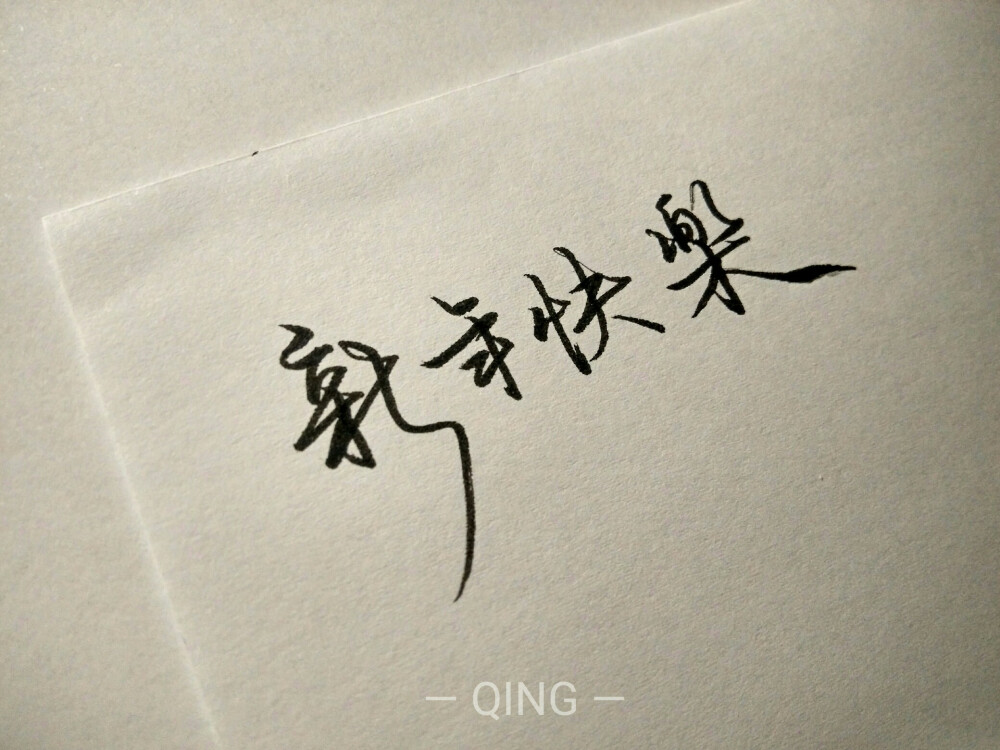 新年快樂
— QING —